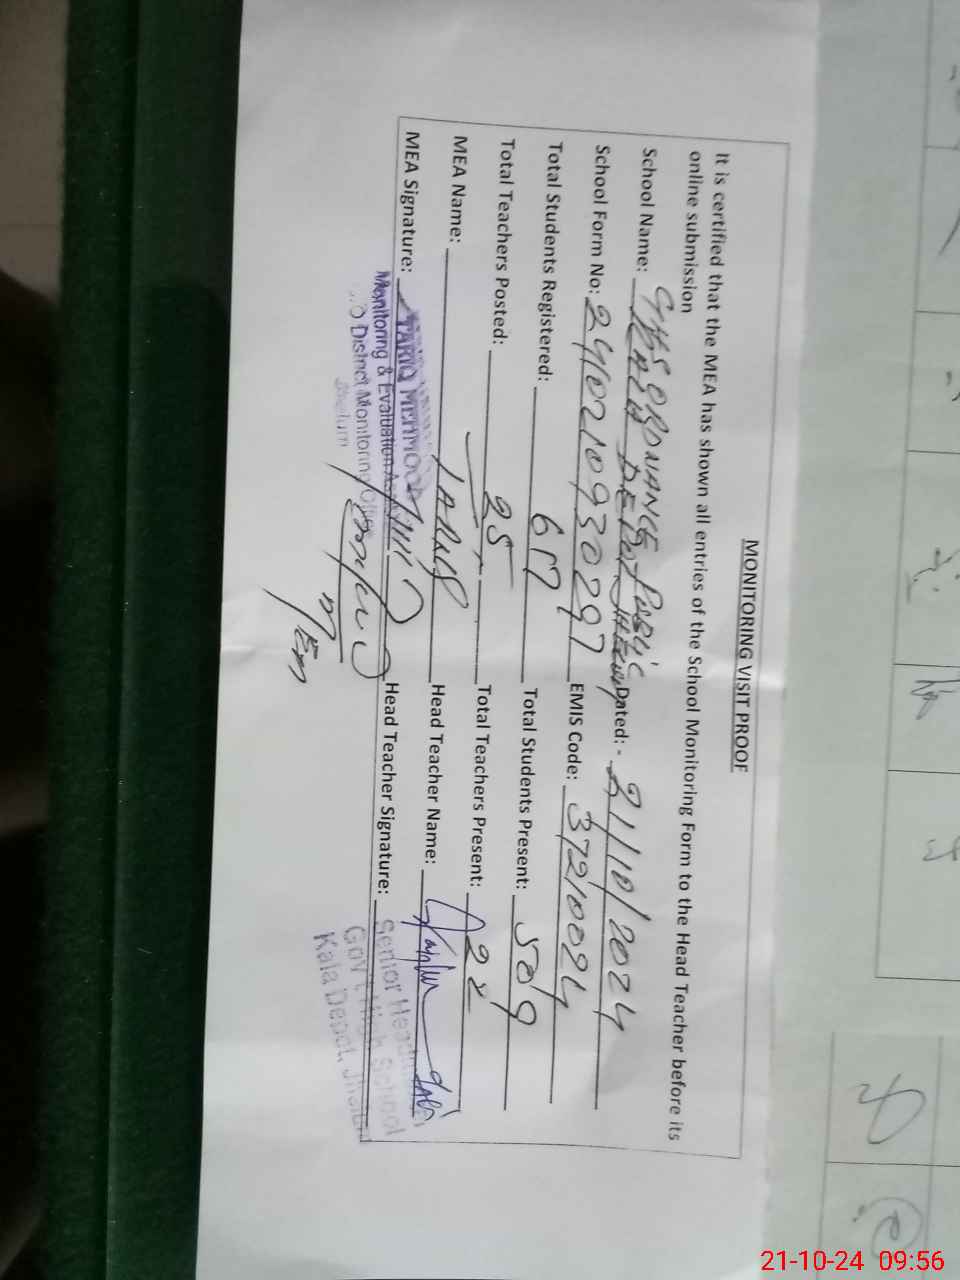 MONITORING VISIT PROOF
It is certified that the MEA has shown all entries of the School Monitoring Form to the Head Teacher before its
online submission
School Name: GHS ORDNANCE Public Dated: - 21/10/2024
KALA DEPOT
School Form No: 2410210930297 EMIS Code: 37210024
Total Students Registered: 617 Total Students Present: 509
Total Teachers Posted: 25 Total Teachers Present: 22
MEA Name: Head Teacher Name:
MEA Signature: Head Teacher Signature:
TARIQ MEHMOOD
Monitoring & Evaluation
District Monitoring
Jhelum
Senior Headmaster
Gov't High School
Kala Depot, Jhelum
21-10-24 09:56